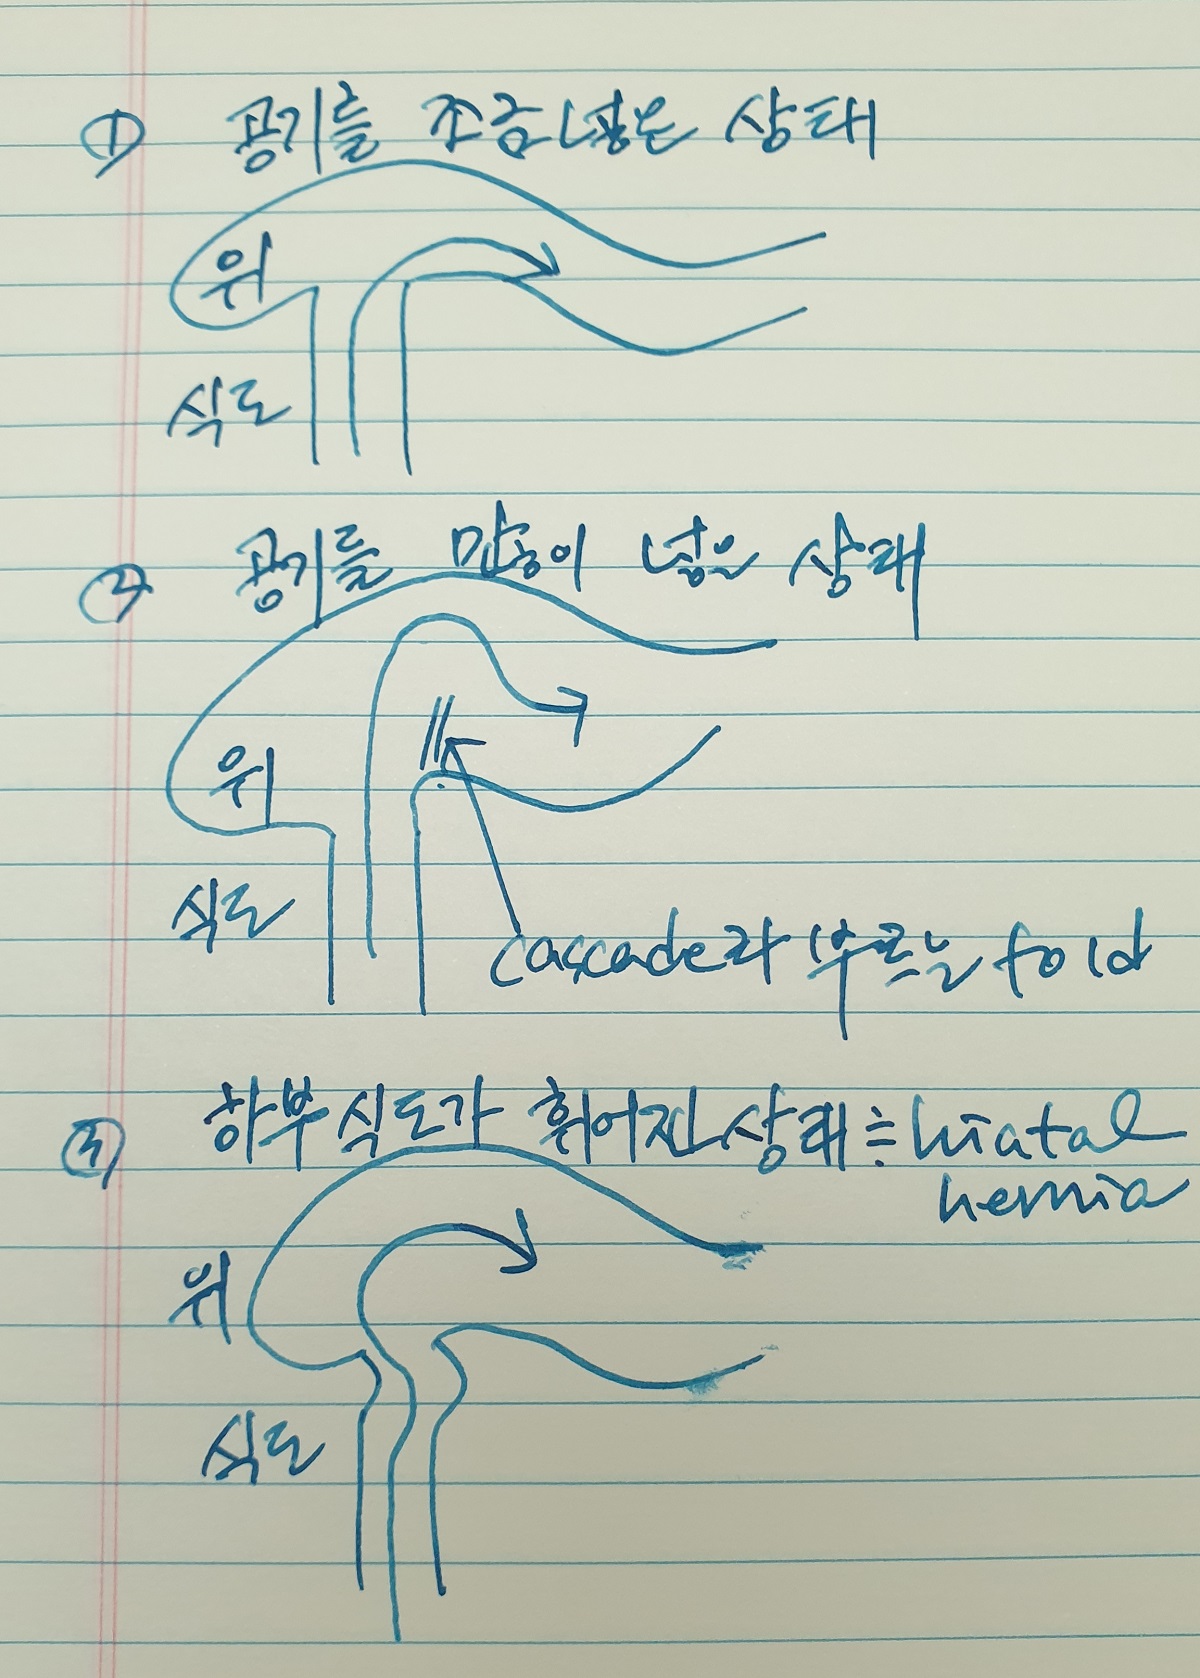 ① 공기를 조금 넣은 상태
위
식도
② 공기를 많이 넣은 상태
위
식도
cascade라 부르는 fold
③ 하부 식도가 휘어진 상태 ≒ hiatal
hernia
위
식도